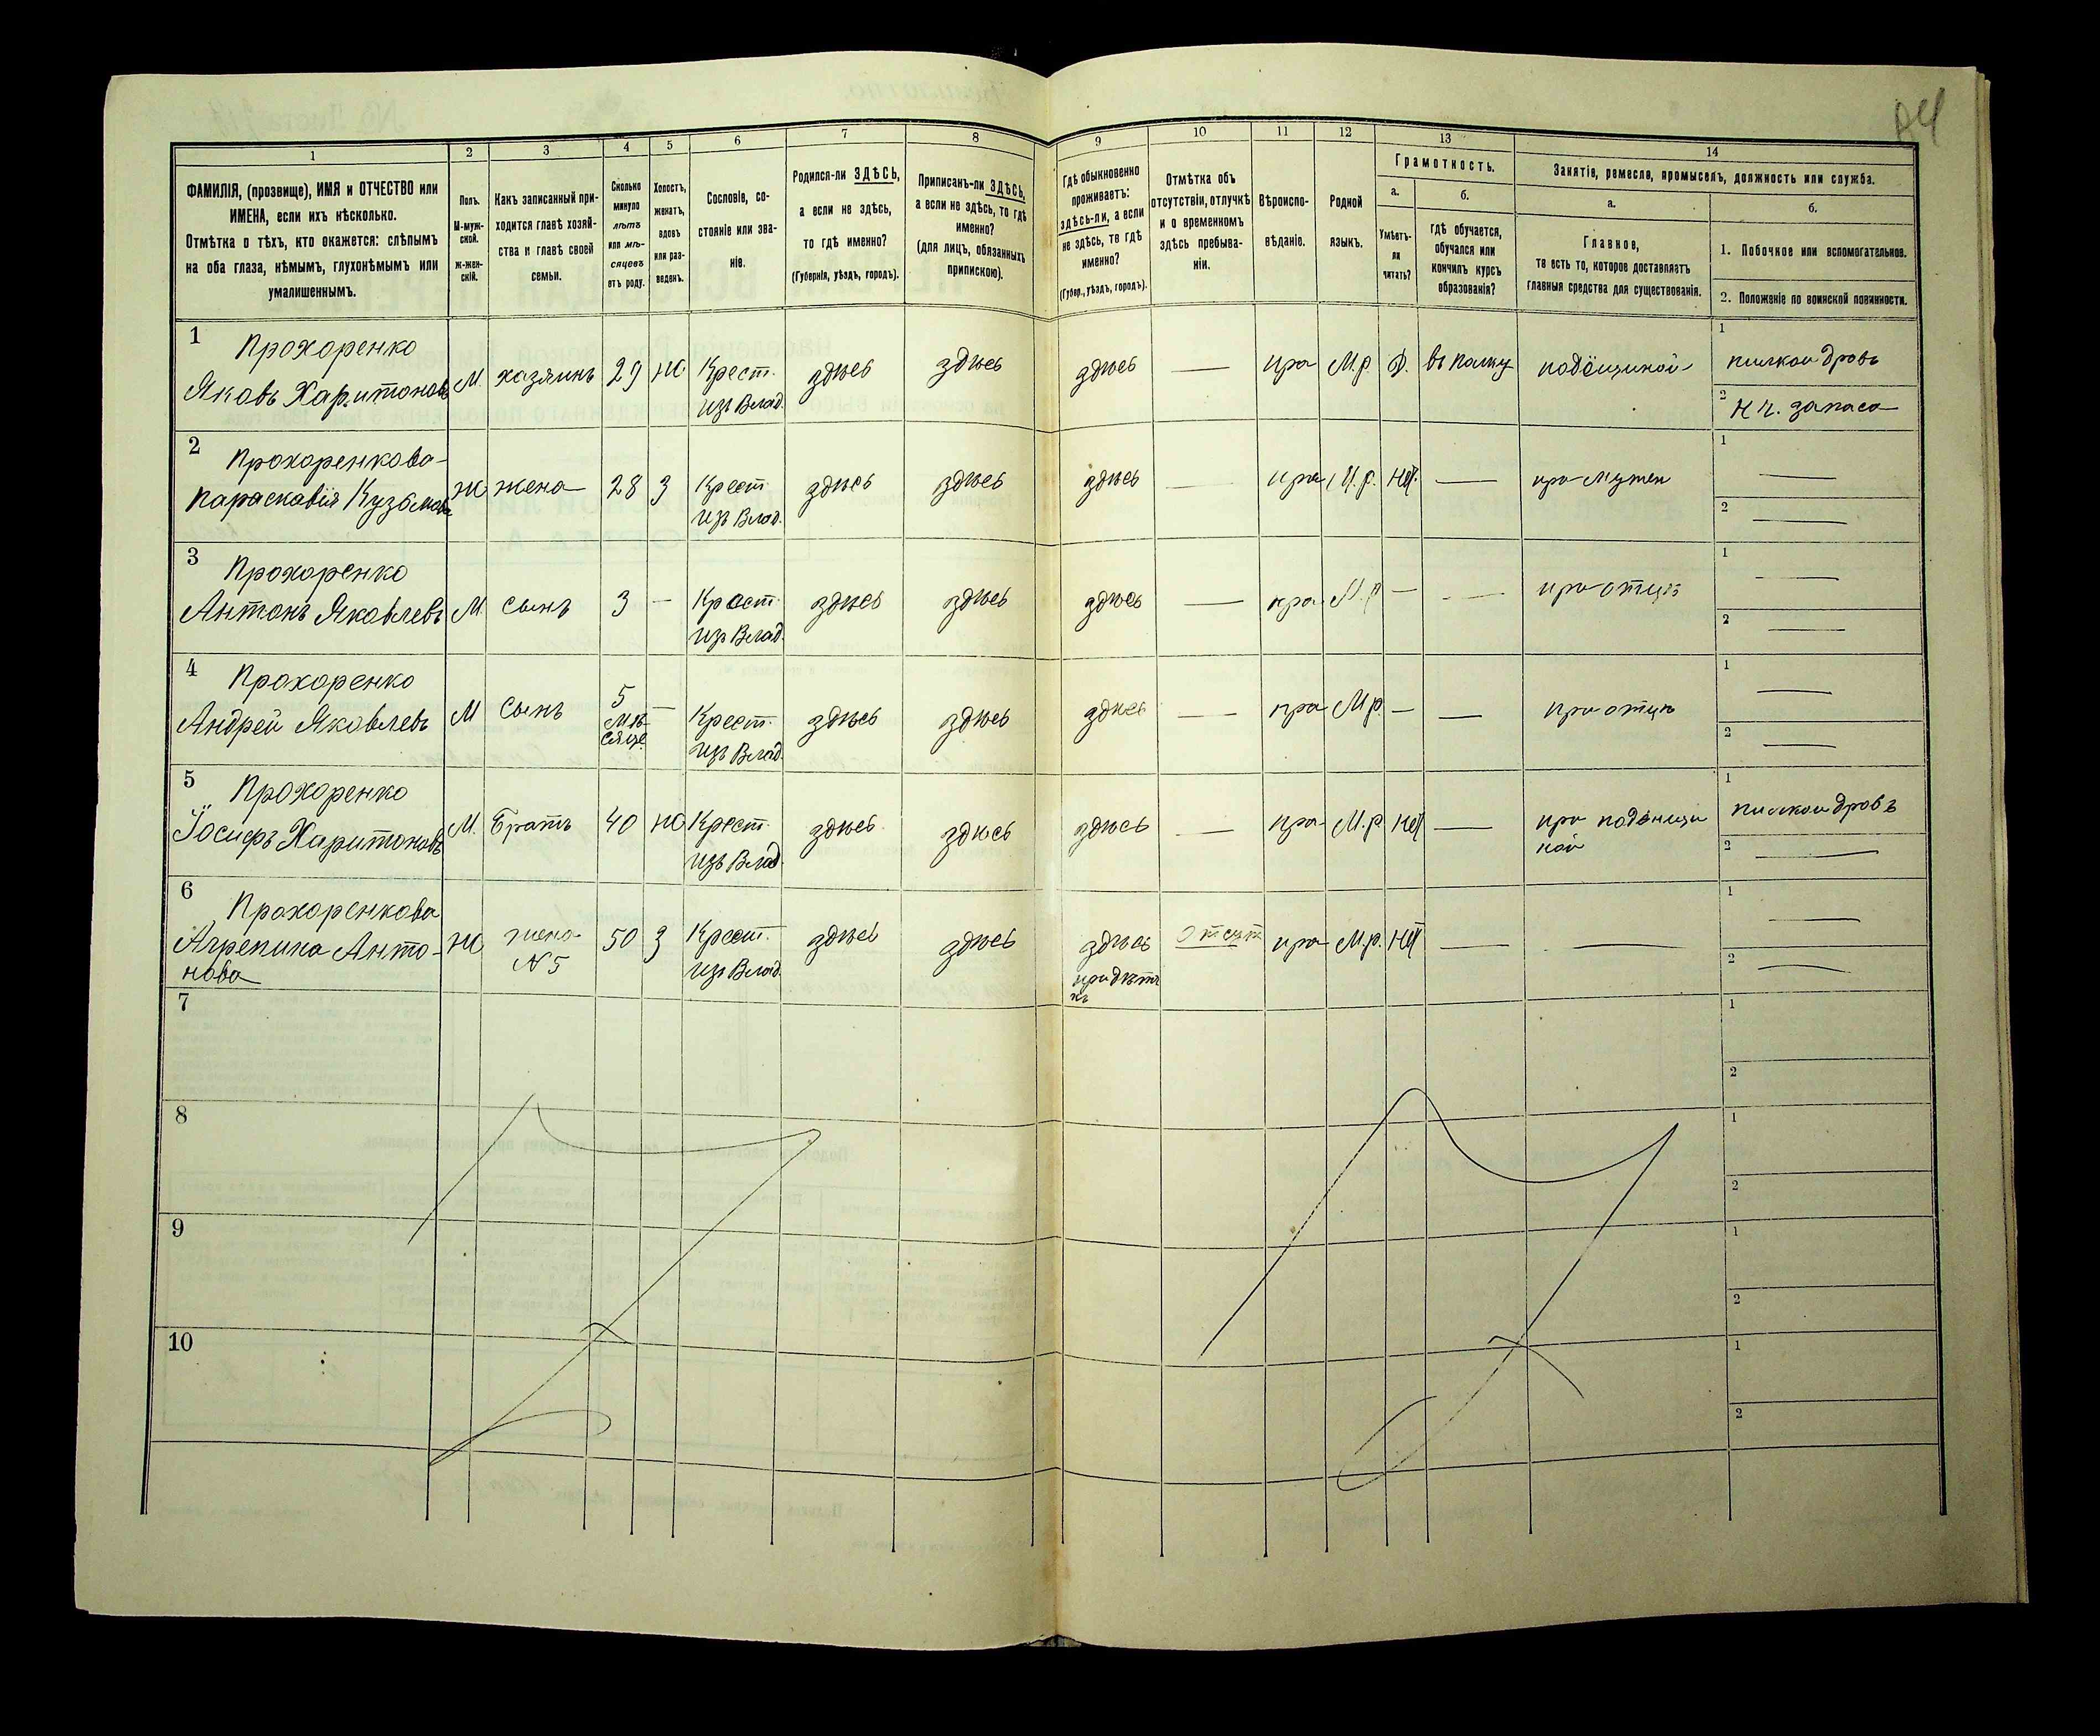 1
2
3
4
5
6
7
8
9
10
11
12
13
14
ФАМИЛІЯ, (прозвище), ИМЯ и ОТЧЕСТВО или
ИМЕНА, если ихъ нѣсколько.
Отмѣтка о тѣхъ, кто окажется: слѣпымъ
на оба глаза, нѣмымъ, глухонѣмымъ или
умалишеннымъ.
Полъ.
М-муж-
ской.
Ж-жен-
скій.
Какъ записанный при-
ходится главѣ хозяй-
ства и главѣ своей
семьи.
Сколько
минуло
лѣтъ
или мѣ-
сяцевъ
отъ роду.
Холостъ,
женатъ,
вдовъ
или раз-
веденъ.
Сословіе, со-
стояніе или зва-
ніе.
Родился-ли ЗДѢСЬ,
а если не здѣсь,
то гдѣ именно?
(Губернія, уѣздъ, городъ).
Приписанъ-ли ЗДѢСЬ,
а если не здѣсь, то гдѣ
именно?
(для лицъ, обязанныхъ
припискою).
Гдѣ обыкновенно
проживаетъ:
здѣсь-ли, а если
не здѣсь, то гдѣ
именно?
(Губер., уѣздъ, городъ).
Отмѣтка объ
отсутствіи, отлучкѣ
и о временномъ
здѣсь пребыва-
ніи.
Вѣроиспо-
вѣданіе.
Родной
языкъ.
Грамотность.
а.
Умѣетъ-
ли
читать?
б.
гдѣ обучается,
обучался или
кончилъ курсъ
образованія?
Занятіе, ремесло, промыселъ, должность или служба.
а.
Главное,
то есть то, которое доставляетъ
главныя средства для существованія.
б.
1. Побочное или вспомогательное.
2. Положеніе по воинской повинности.
1 Прохоренко
Яковъ Харитоновъ М. хозяинъ 29 Ж Крест. здѣсь здѣсь здѣсь — пра М.р. Д. въ полку подёнщиной 1 пилкои дровъ
изъ Влад. 2 Н ч. запаса
2 Прохоренкова
Параскавія Кузьмова Ж жена 28 З Крест. здѣсь здѣсь здѣсь — пра М.р. Нѣт. — при мужеи 1 —
изъ Влад. 2 —
3 Прохоренко
Антонъ Яковлевъ М сынъ 3 — Крест. здѣсь здѣсь здѣсь — пра М.р — — при отцѣ 1 —
изъ Влад. 2 —
4 Прохоренко
Андрей Яковлевъ М сынъ 5 мѣсяце — Крест. здѣсь здѣсь здѣсь — пра М.р. — — при отцѣ 1 —
изъ Влад. 2 —
5 Прохоренко
Іосифъ Харитоновъ М. Братъ 40 Ж Крест. здѣсь здѣсь здѣсь — пра М.р. Нѣт — при подёнщи 1 пилкои дровъ
изъ Влад. ной 2 —
6 Прохоренкова
Агрепина Анто- Ж жена 50 З Крест. здѣсь здѣсь здѣсь отсут пра М.р. Нѣт — — 1 —
нова N 5 изъ Влад. 2 —
7 1
2
8 1
2
9 1
2
10 1
2